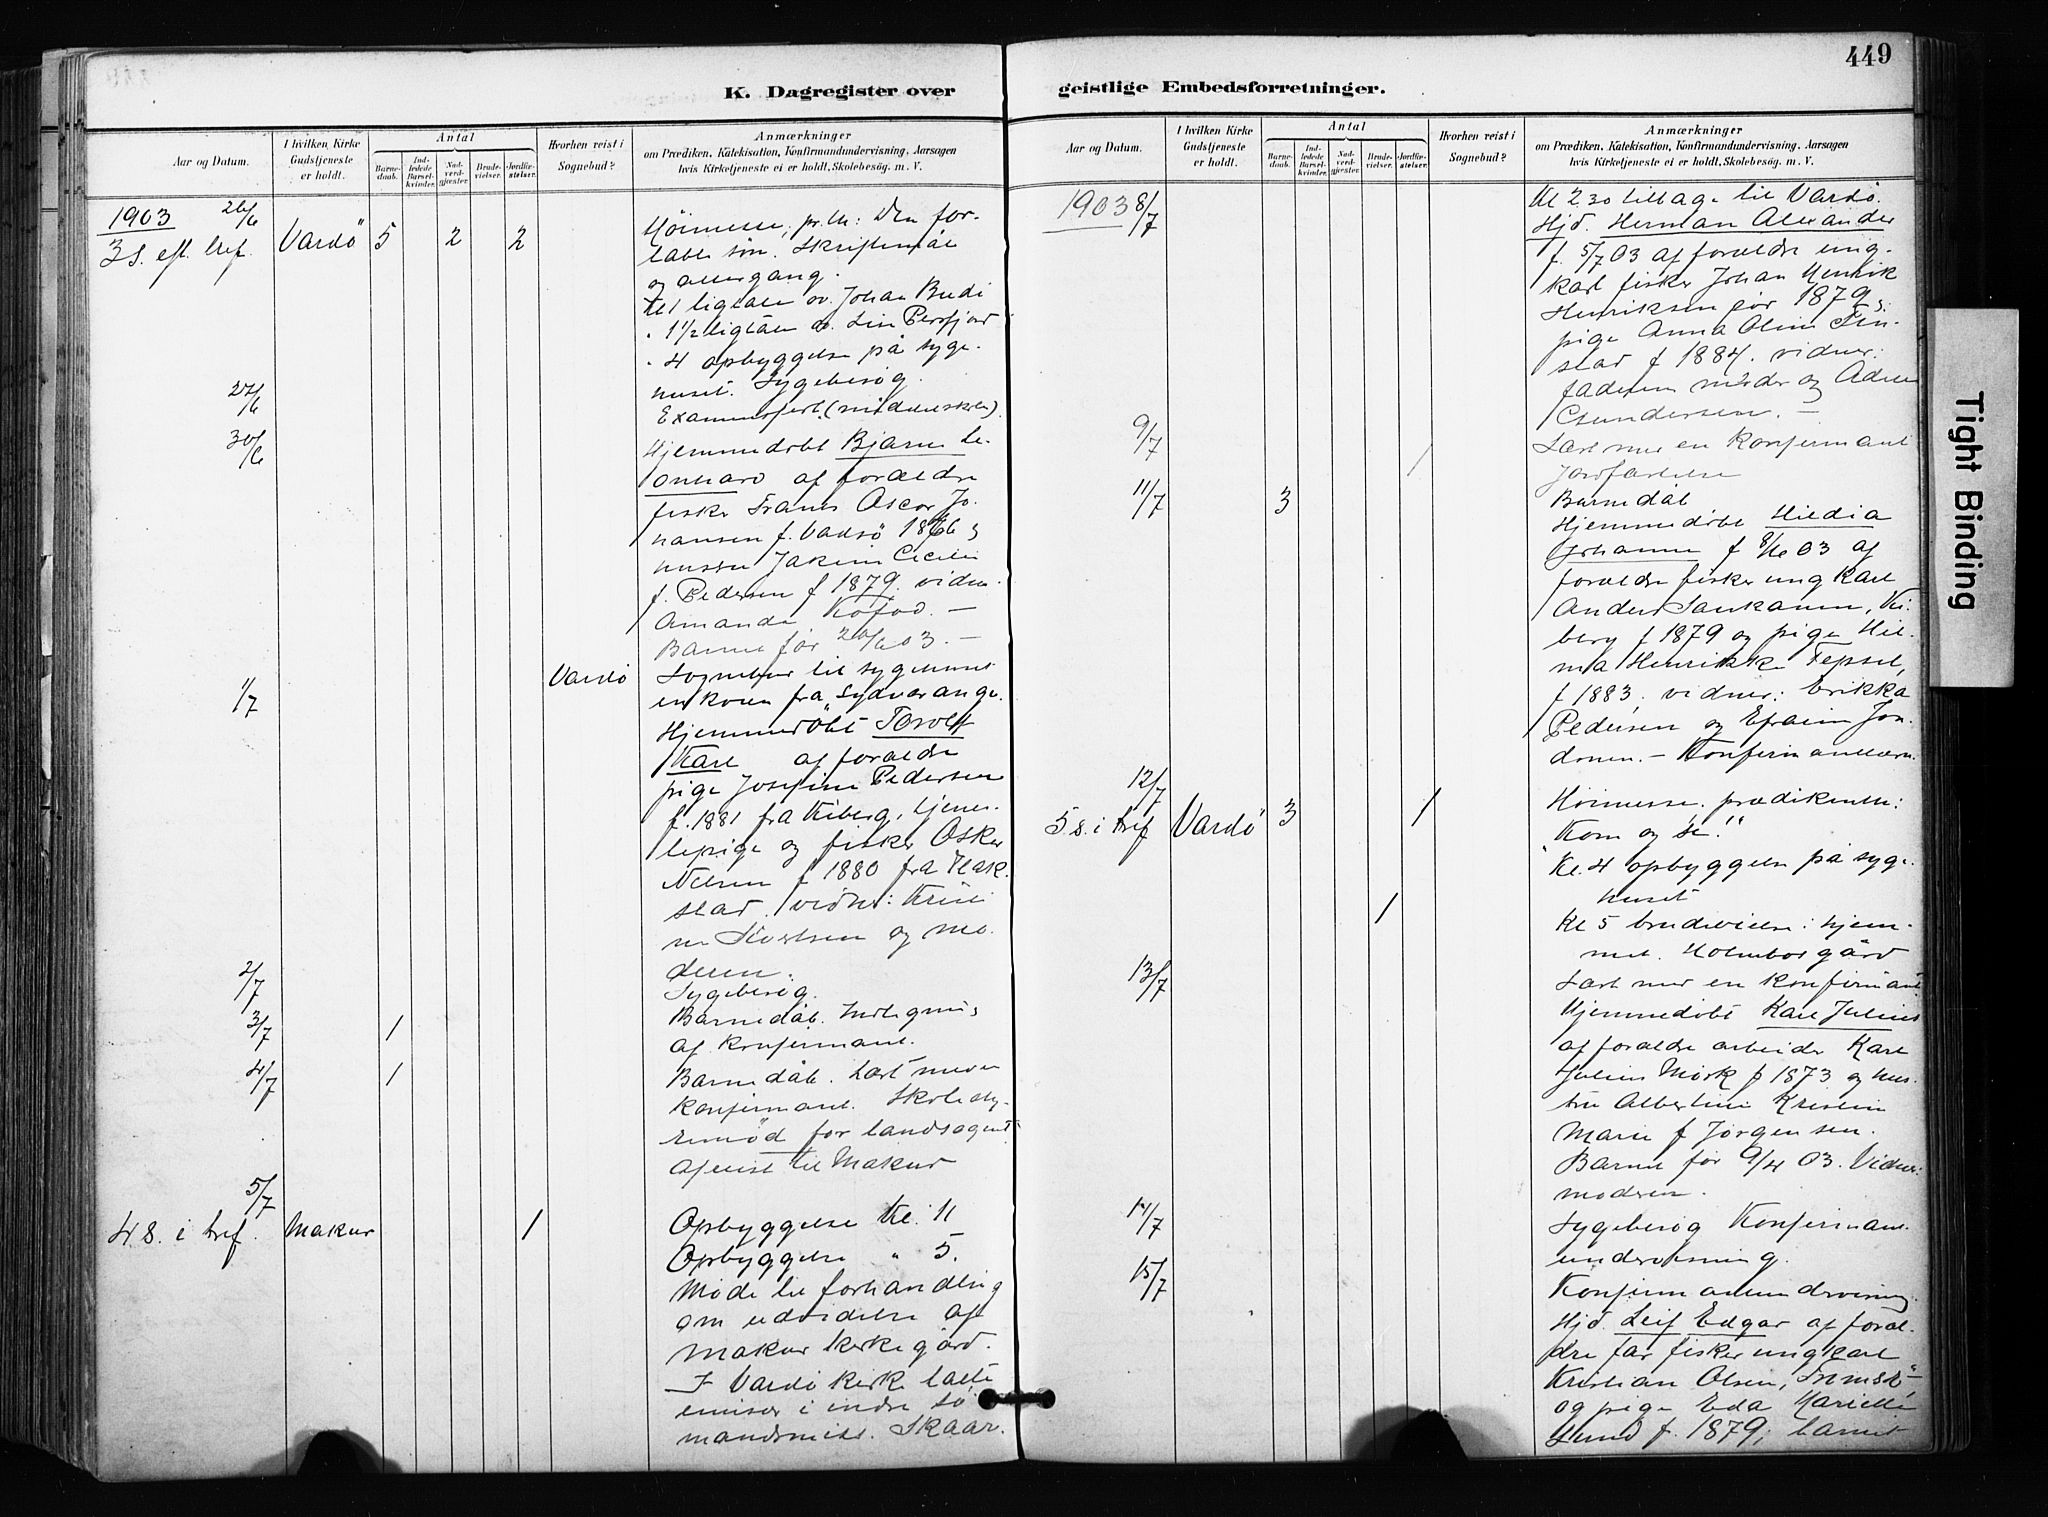 449
K. Dagregister over
geistlige Embedsforretninger.
Aar og Datum.
I hvilken Kirke
Gudstjeneste
er holdt.
Antal
Barne-
daab.
Ind-
ledede
Barsel-
kvinder.
Nad-
verd-
gjæster.
Brude-
vielser.
Jordfæ-
stelser.
Hvorhen reist i
Sognebud?
Anmærkninger
om Prædiken, Katekisation, Konfirmandundervisning, Aarsagen
hvis Kirketjeneste ei er holdt, Skolebesøg. m. V.
1903
Vardö 5 2 2
Höimesse, pr.th: Den for-
labte søn. Skriftemål
og altergang.
Kl 1 ligtale ov. Johan
1½ ligtale ov. Persfjord
4 opbyggelse på syge-
huset. Sygebesøg.
27/6
Examensfest (middelskolen).
30/6
Hjemmedøbt Bjarne Le-
onhard af forældre
fisker Frants Oscar Jo-
hansen f. Vadsö
hustru Cecilie
f. Pedersen f 1879. vidne
Amanda Kofod. —
Barnet før 03. —
Vardö
1/7
Sognebud til sygehuset
en kone fra Sydvaranger.
Hjemmedøbt
Karl af forældre
pige Josefine Pedersen
f. 1881 fra Kiberg, tjene-
stepige og fisker Osker
Nelsen f 1880 fra
stad. vidne:
og mo-
deren.
2/7
Sygebesøg.
3/7 1
Barnedåb.
af konfirmant.
4/7 1
Barnedåb. Læst med en
konfirmant. Skolesty-
remöd for landsognet
Afreist til Makur
5/7
4 S. i tref. Makur 1
Opbyggelse Kl. 11
Opbyggelse " 5.
Møde til forhandling
om udvidelse af
Makur kirkegård.
I Vardö kirke talte
emisær i indre sø-
mandsmiss. Skaar.
Aar og Datum.
I hvilken Kirke
Gudstjeneste
er holdt.
Antal
Barne-
daab.
Ind-
ledede
Barsel-
kvinder.
Nad-
verd-
gjæster.
Brude-
vielser.
Jordfæ-
stelser.
Hvorhen reist i
Sognebud?
Anmærkninger
om Prædiken, Katekisation, Konfirmandundervisning, Aarsagen
hvis Kirketjeneste ei er holdt, Skolebesøg. m. V.
1903 8/7
Kl 2.30 tilbage til Vardö.
Hjd. Herman Alexander
f. 5/7 03 af forældre ung-
karl fisker Johan Henrik
Henriksen før 1879 og
pige Anna Oline Fin-
stad f 1884. vidner:
faderen moder og
9/7 1
Læst med en konfirmant
Jordfæstelse
11/7 3
Barnedåb
Hjemmedøbt Hildia
Johanne f 03 af
forældre fisker ungkarl
Anders Ki-
berg f 1879 og pige Hil-
ma Henrikke
f 1883. vidner: Erikka
Pedersen og Efraim
12/7
5. s. i tref Vardö 3 1
Höimesse. prædikenth:
"Kom og se!"
Kl. 4 opbyggelse på syge-
huset
1
Kl 5 brudevielse i hjem-
met. gård
13/7
Læst med en konfirmant
Hjemmedøbt Karl Julius
af forældre arbeider Karl
Julius Mørk f 1873 og hus-
tru Albertine Kristin
Marie f Jørgensen.
Barnet før 9/4 03. Vidner:
moderen.
14/7
Sygebesøg Konfirmant-
undervisning.
15/7
Hjd. Leif Edgar af foræl-
dre far fisker ungkarl
Kristian Olsen, Tromsö
og pige
Lund f. 1879; barnet
Tight Binding